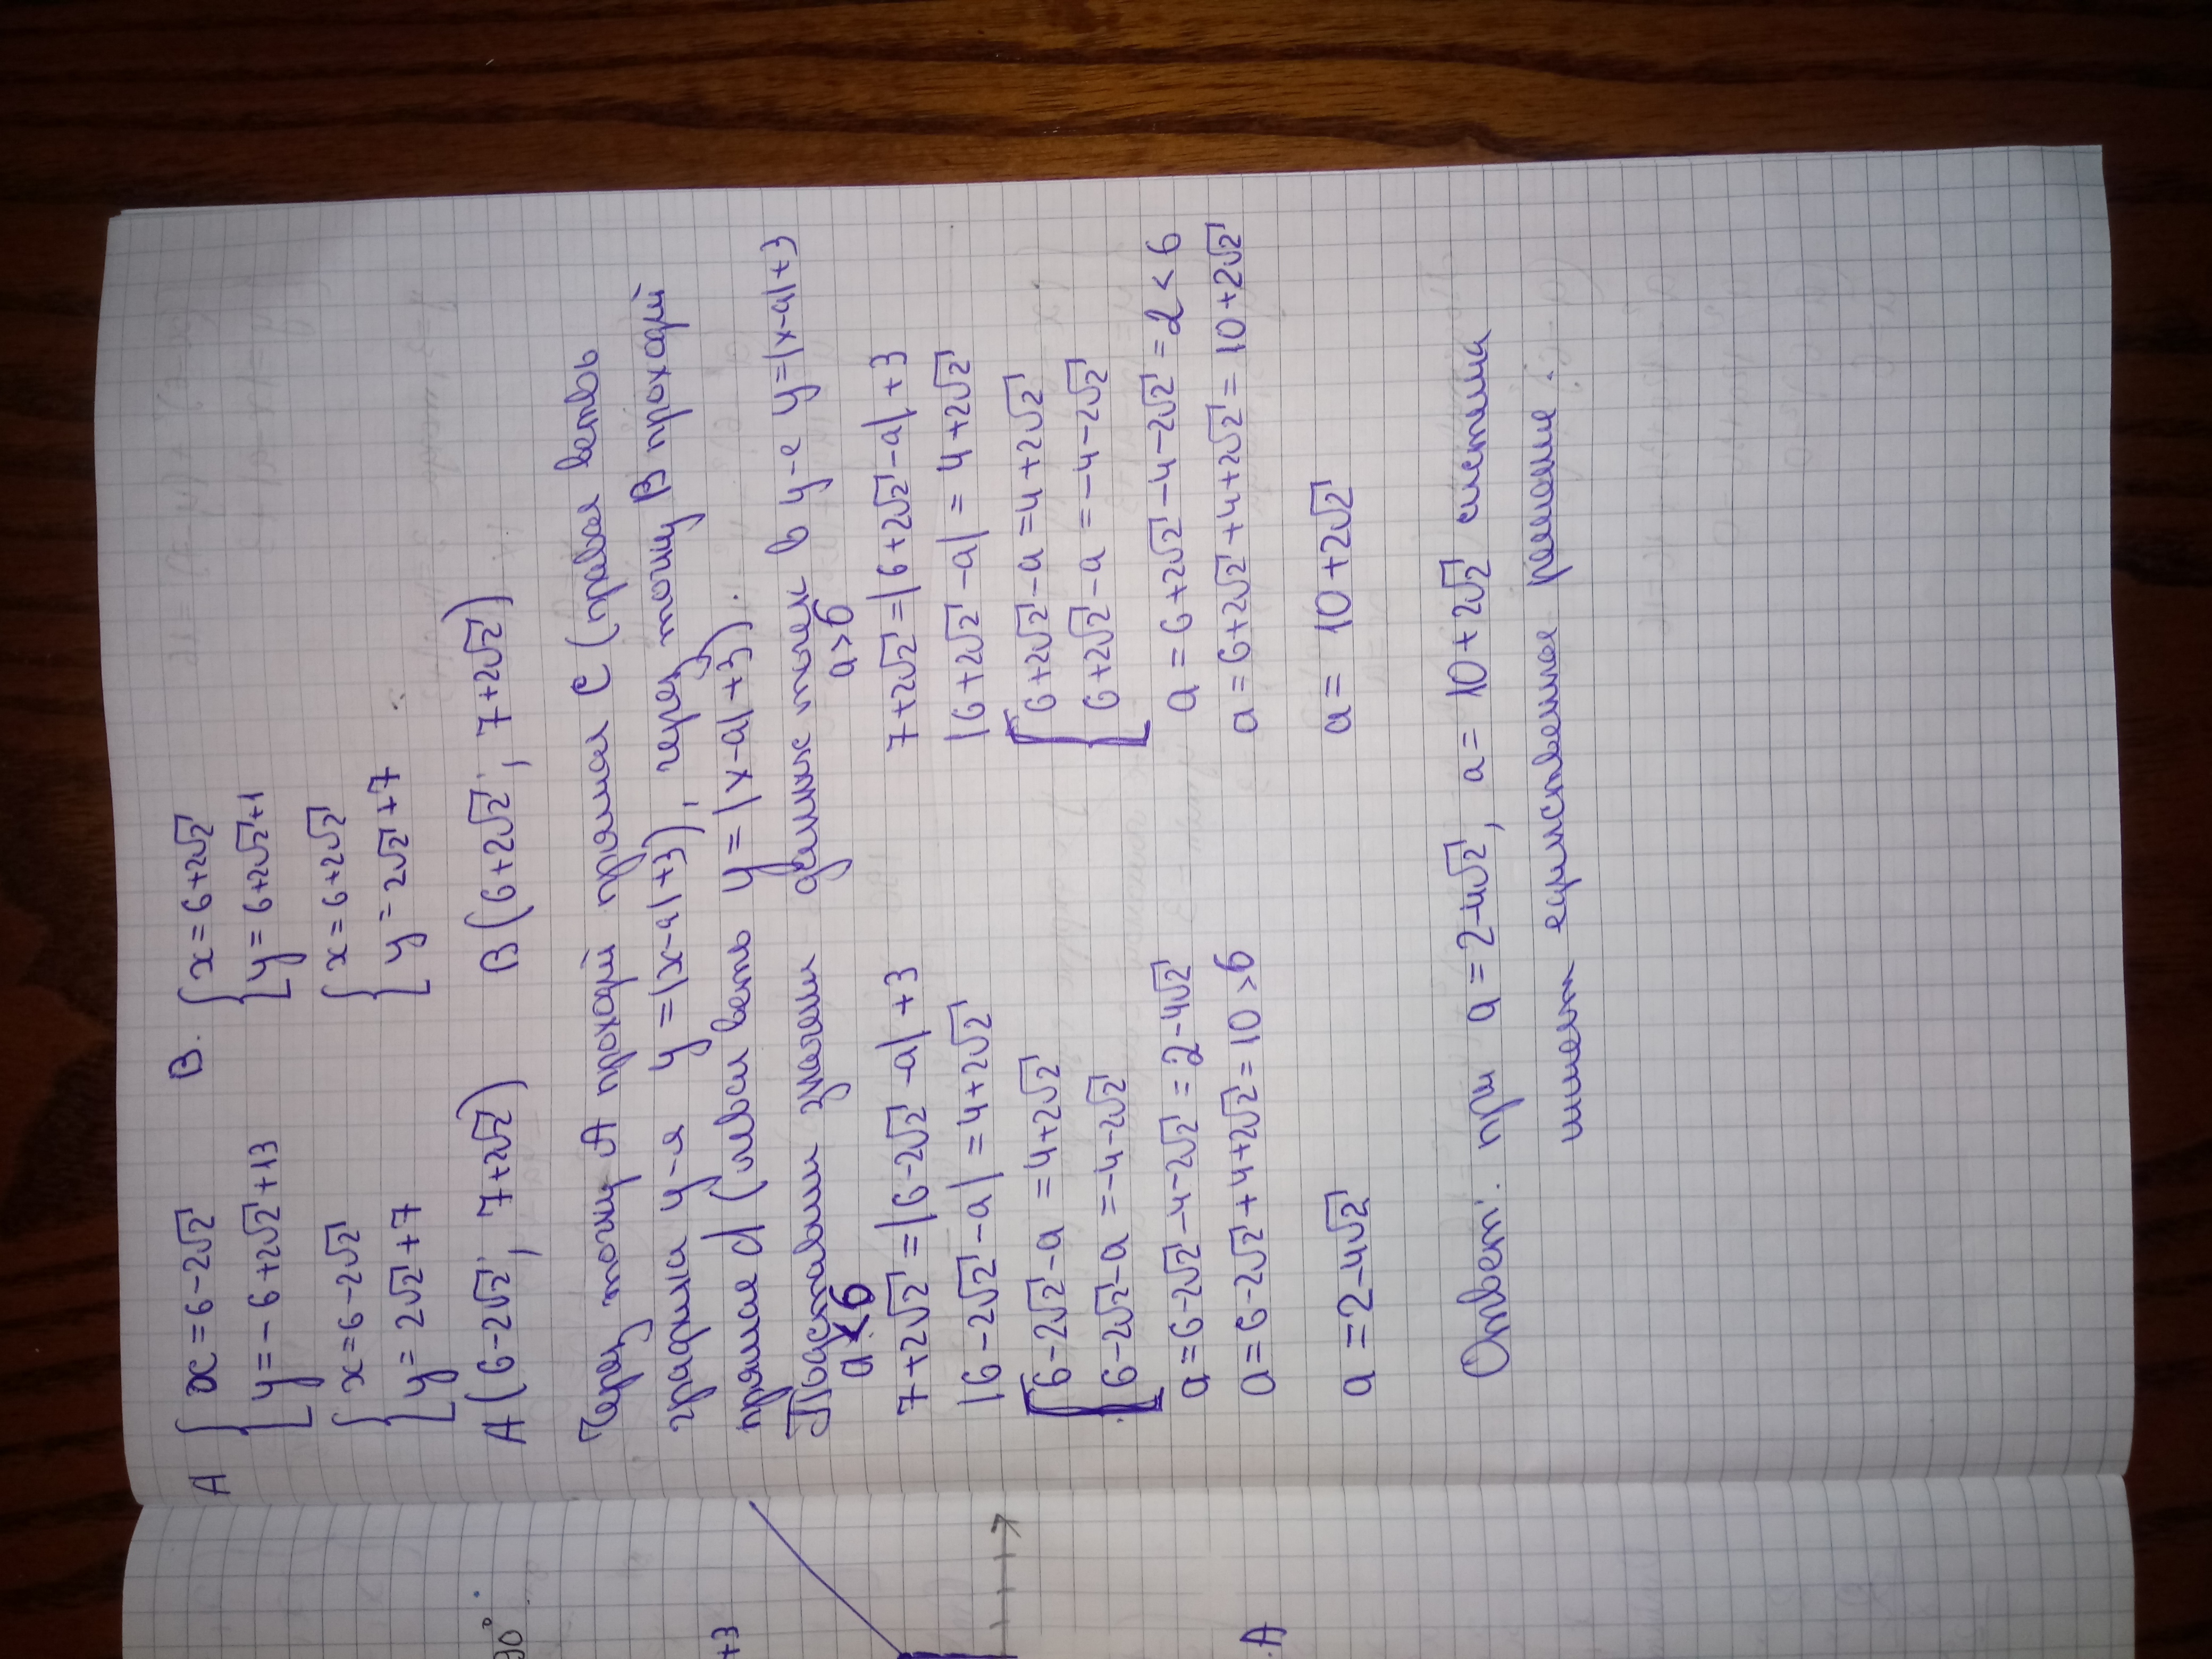 A { x = 6-2√2 B. { x = 6+2√2
{ y = -6+2√2+13 { y = 6+2√2+1
{ x = 6-2√2 { x = 6+2√2
{ y = 2√2+7 { y = 2√2+7
A (6-2√2; 7+2√2) B (6+2√2; 7+2√2)
Через точку А проходит прямая C (правая ветвь
графика у-я y = |x-a|+3), через точку B проходит
прямая d (левая ветвь y = |x-a|+3).
Подставим значения данных точек в у-е y=|x-a|+3
a<6 a>6
7+2√2 = |6-2√2-a|+3 7+2√2 = |6+2√2-a|+3
|6-2√2-a| = 4+2√2 |6+2√2-a| = 4+2√2
[ 6-2√2-a = 4+2√2 [ 6+2√2-a = 4+2√2
[ 6-2√2-a = -4-2√2 [ 6+2√2-a = -4-2√2
a = 6-2√2-4-2√2 = 2-4√2 a = 6+2√2-4-2√2 = 2 < 6
a = 6-2√2+4+2√2 = 10 > 6 a = 6+2√2+4+2√2 = 10+2√2
a = 2-4√2 a = 10+2√2
Ответ: при a = 2-4√2, a = 10+2√2 система
имеет единственное решение.
90°.
+3
A